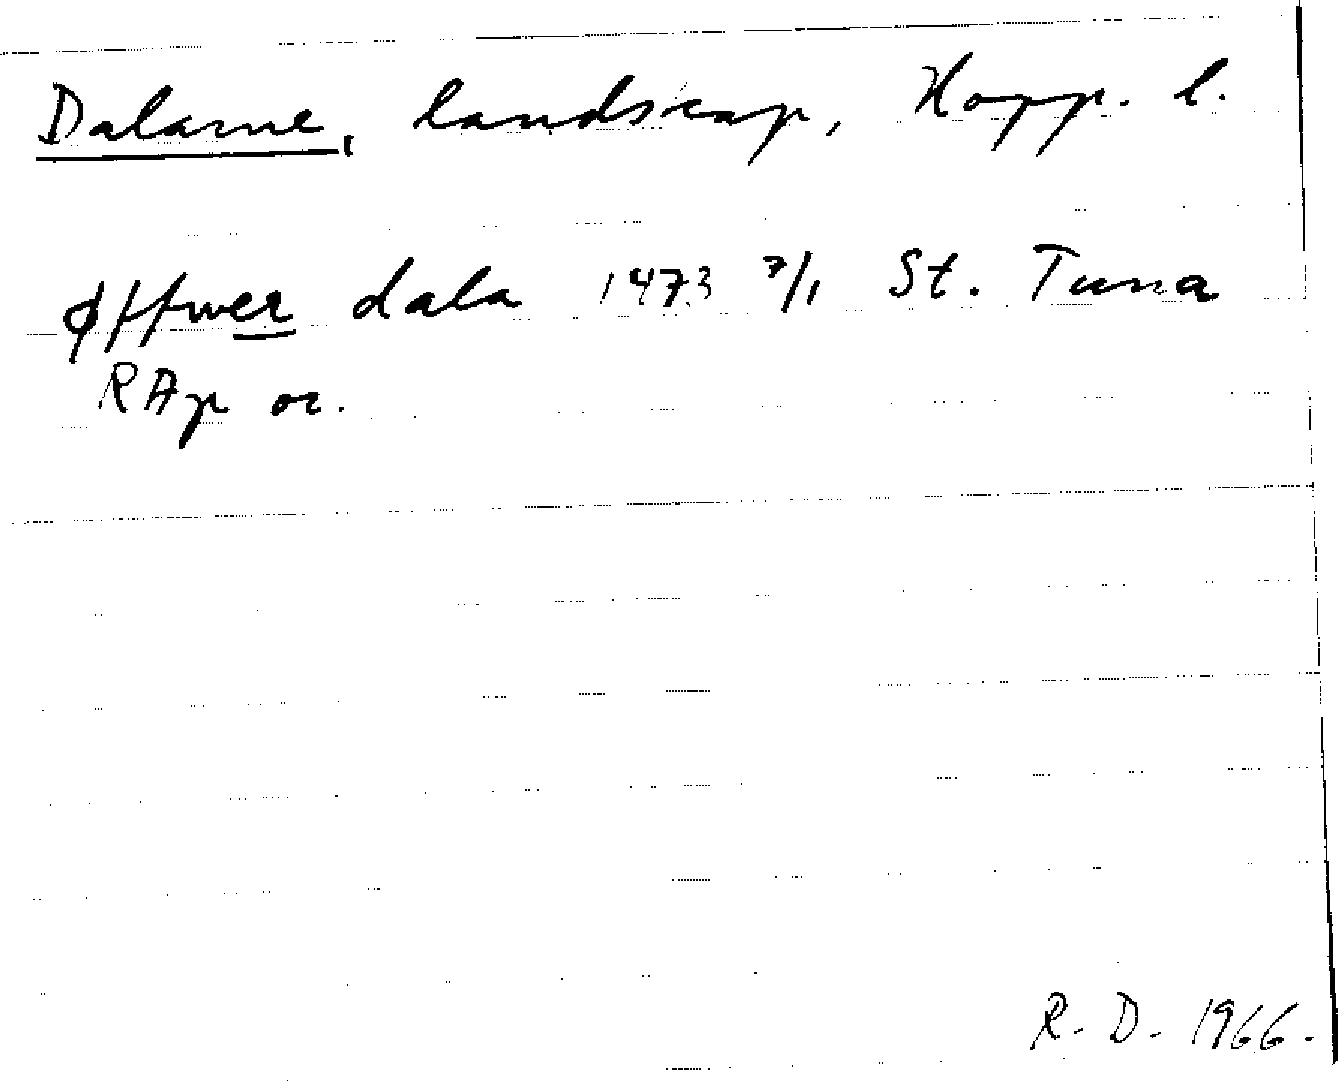 Dalarne, landskap, Kopp. l.
Øffwer dala 1473 7/1 St. Tuna
RAp or.
R. D. 1966.